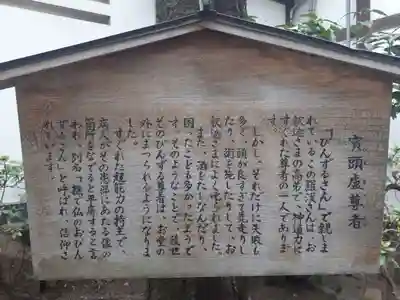 賓頭盧尊者
「びんずるさん」で親しま
れているこの羅漢さんは、お
釈迦さまの高弟で、神通力に
すぐれた尊者の一人でありま
す。
しかし、それだけに失敗も
多く、頭が良すぎて先走りし
たり、術を施したりして、お
釈迦さまによく叱られました。
また、酒をたしなんだり、
困ったことも多かったようで
す。そのようなことで、後世
そのびんずる尊者は、お堂の
外にまつられるようになりま
した。
すぐれた超能力の持主で、
病人がその患部にあたる像の
箇所をなでると平癒すると言
われ、別名「撫で仏のおびん
ずるさん」と呼ばれ、信仰さ
れています。